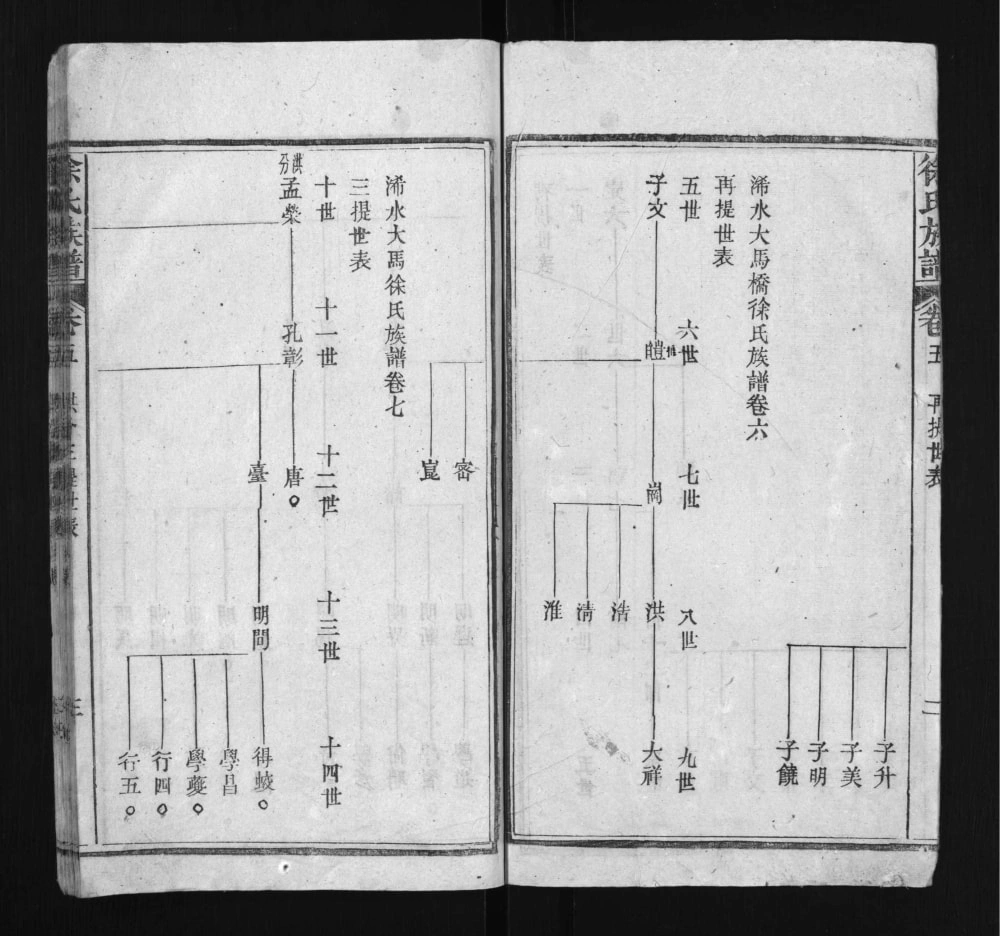 徐氏族譜
卷五
再提世表
二
子升
子美
子明
子饒
浠水大馬橋徐氏族譜卷六
再提世表
五世
六世
七世
八世
九世
子文
皚
崗
洪
大祥
浩
清
淮
密
崑
浠水大馬徐氏族譜卷七
三提世表
十世
十一世
十二世
十三世
十四世
洪分
孟榮
孔彰
唐
臺
明問
得蛟
學昌
學夔
行四
行五
徐氏族譜
卷五